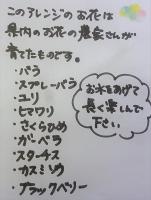 このアレンジのお花は
県内のお花の農家さんが
育てたものです。
・バラ
・スプレーバラ
・ユリ
・ヒマワリ
・さくらひめ
・ガーベラ
・スターチス
・カスミソウ
・ブラックベリー
お水をあげて
長く楽しんで
下さい